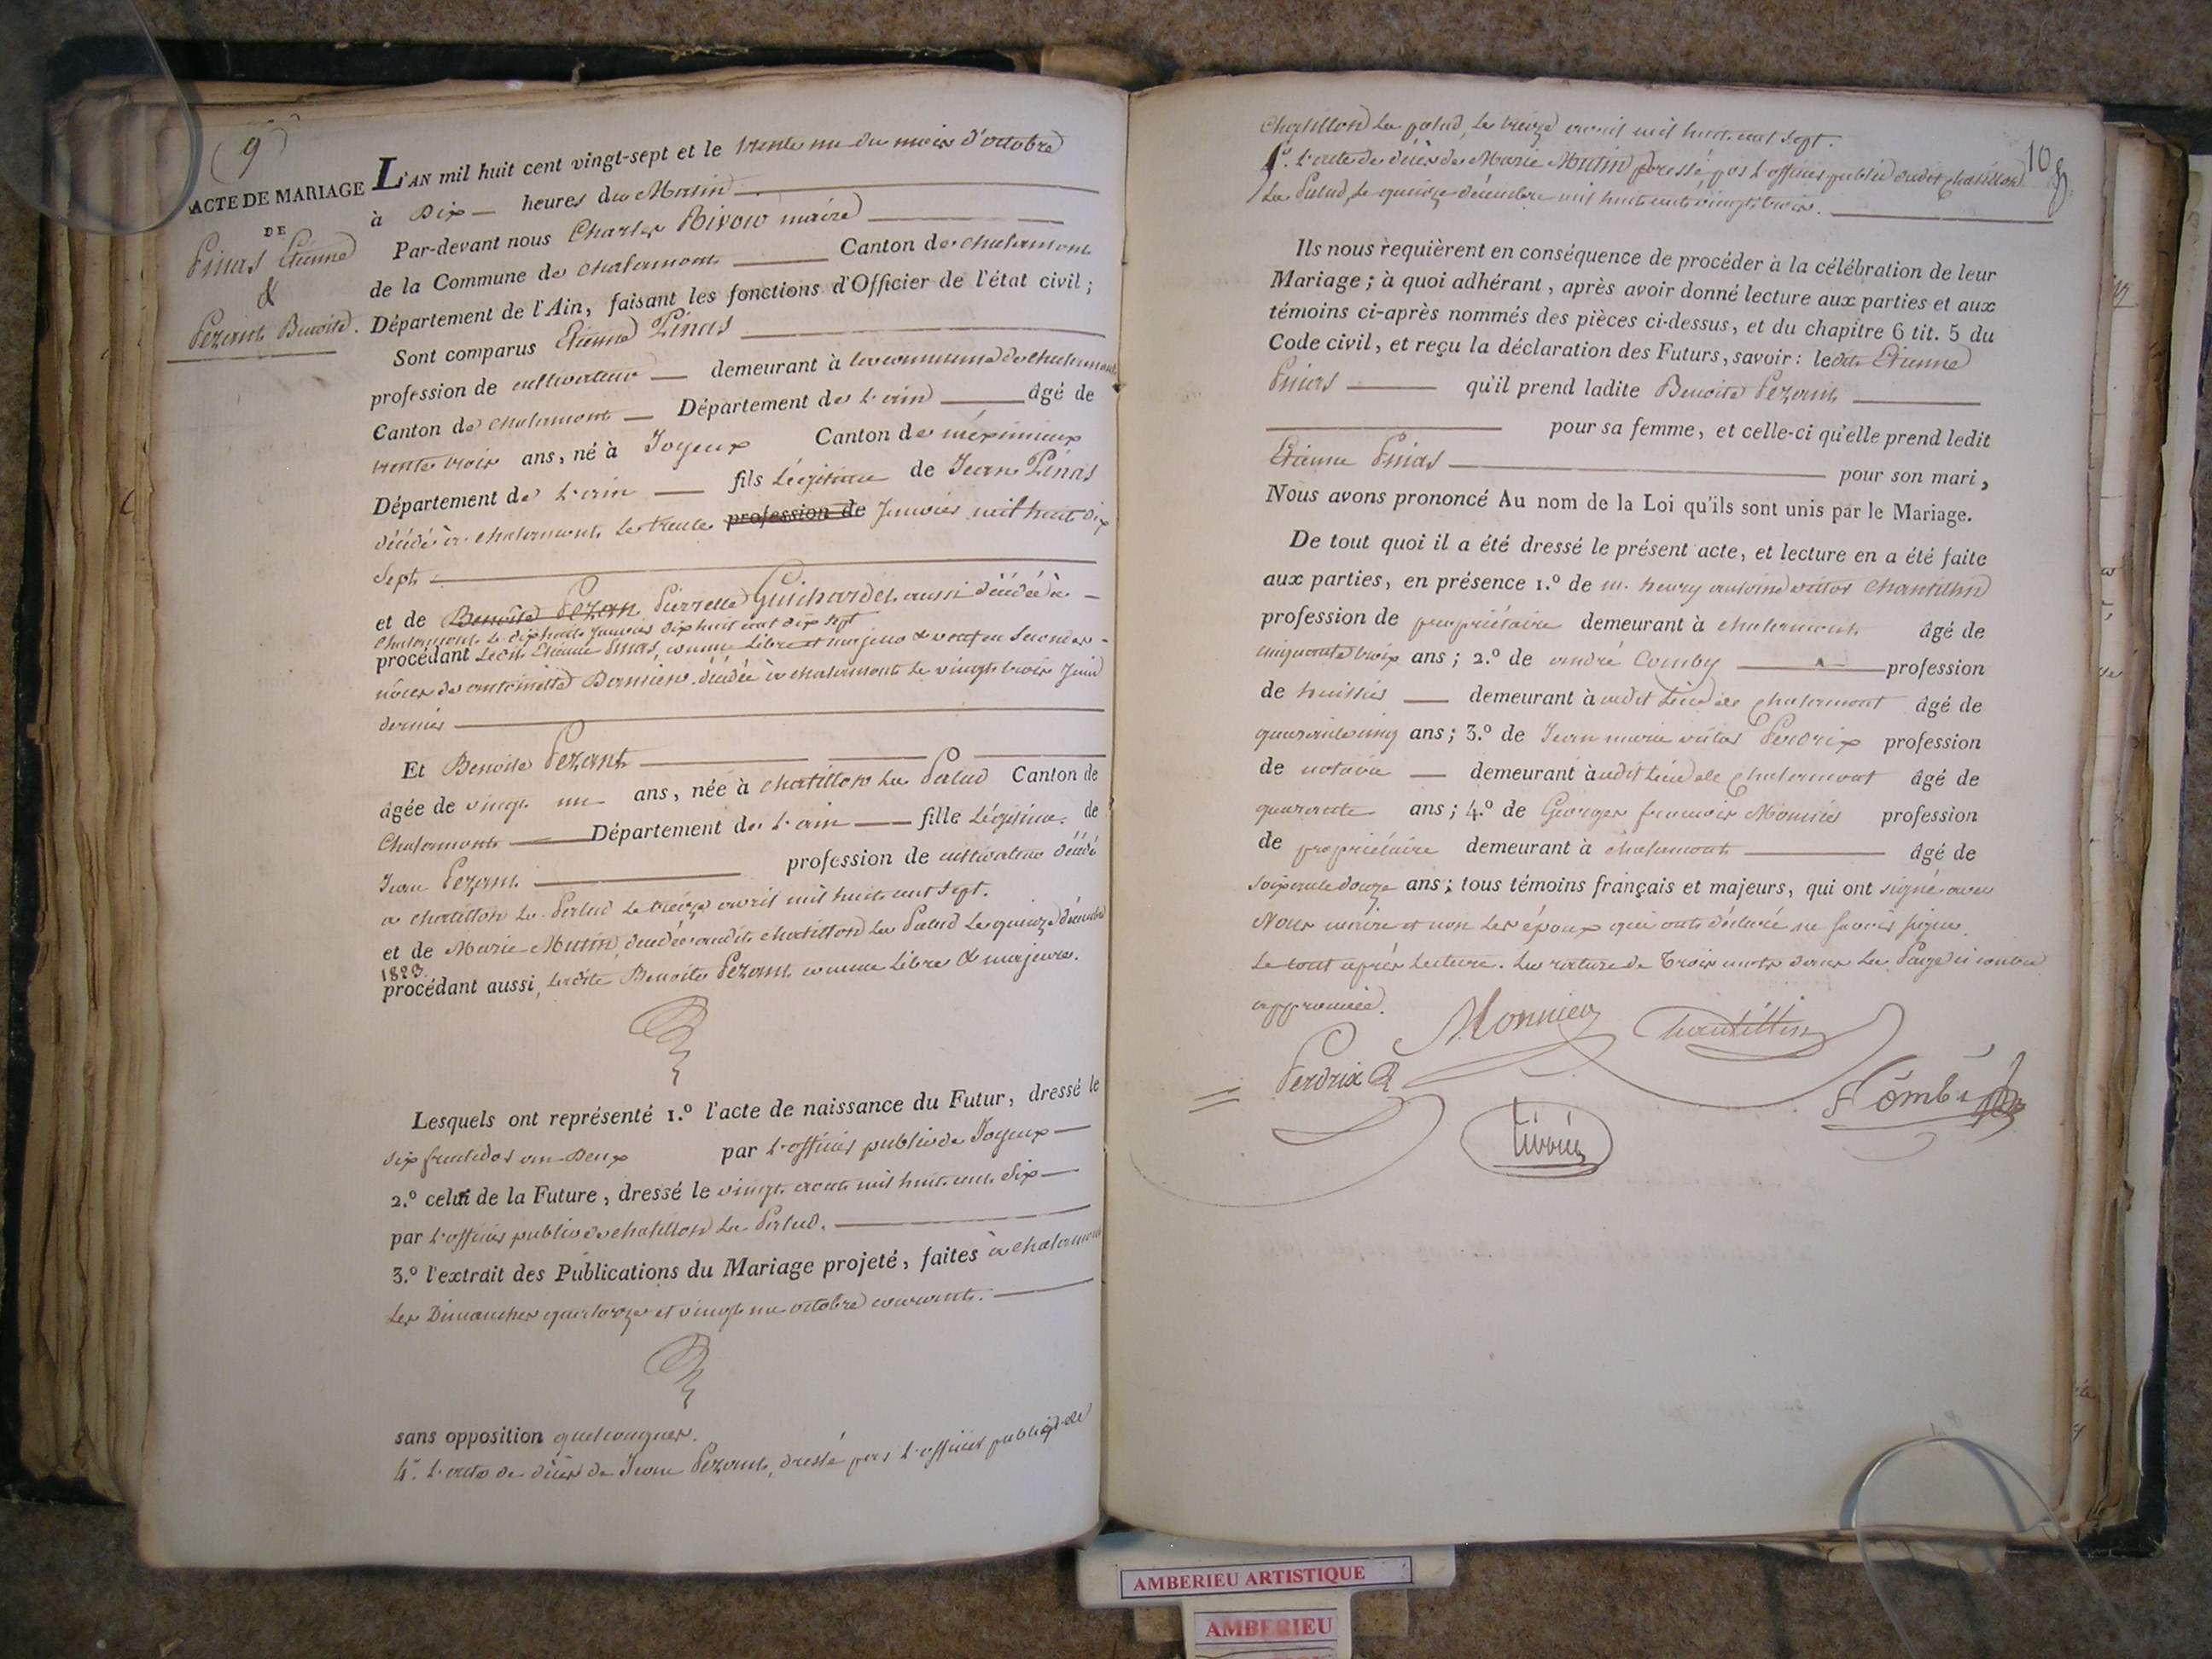 (9)
ACTE DE MARIAGE
DE
Pinas Etienne
&
Pezant Benoite.
L'AN mil huit cent vingt-sept et le trente un du mois d'octobre
à Dix heures du Matin
Par-devant nous Charles maire
de la Commune de Chalamont Canton de Chalamont
Département de l'Ain, faisant les fonctions d'Officier de l'état civil;
Sont comparus Etienne Pinas
profession de cultivateur demeurant à la commune de Chalamont
Canton de Chalamont Département de L'ain âgé de
trente trois ans, né à Joyeux Canton de méximieux
Département de L'ain fils Légitime de Jean Pinas
décédé à Chalamont le trente profession de Janvier mil huit dix
Sept
et de Benoite Pezan Pierrette Guichardet aussi décédée à
Chalamont Le dix huit Janvier dix huit cent dix sept
procédant Ledit Etienne Pinas, comme Libre et majeur & veuf en Secondes
nôces de antoinette Damien. décédée à Chalamont le vingt trois Juin
dernier
Et Benoite Pezant
âgée de vingt un ans, née à Chatillon La Palud Canton de
Chalamont Département de L'ain fille Légitime. de
Jean Pezant profession de cultivateur décédé
a Chatillon La Palud Le treize avril mil huit cent sept.
et de Marie Mutin, décédée audit Chatillon La Palud Le quinze décembre
1823.
procédant aussi, Ladite Benoite Pezant comme Libre & majeure.
Lesquels ont représenté 1.º l'acte de naissance du Futur, dressé le
six fructidor an Deux par L'officier public de Joyeux
2.º celui de la Future, dressé le vingt août mil huit cent Six
par L'officier public de Chatillon La Palud.
3.º l'extrait des Publications du Mariage projeté, faites à Chalamont
Les Dimanches quatorze et vingt un octobre courant.
sans opposition quelconques.
4.º L'acte de décès de Jean Pezant, dressé par L'officier public de
Chatillon La palud, Le treize avril mil huit cent sept.
108
L'acte de décès de Marie Mutin dressé par L'officier public dudit Chatillon
La Palud, Le quinze décembre mil huit cent vingt trois.
Ils nous requièrent en conséquence de procéder à la célébration de leur
Mariage; à quoi adhérant, après avoir donné lecture aux parties et aux
témoins ci-après nommés des pièces ci-dessus, et du chapitre 6 tit. 5 du
Code civil, et reçu la déclaration des Futurs, savoir: ledit Etienne
Pinas qu'il prend ladite Benoite Pezant
pour sa femme, et celle-ci qu'elle prend ledit
Etienne Pinas pour son mari,
Nous avons prononcé Au nom de la Loi qu'ils sont unis par le Mariage.
De tout quoi il a été dressé le présent acte, et lecture en a été faite
aux parties, en présence 1.º de m. henry antoine victor Chantillin
profession de propriétaire demeurant à Chalamont âgé de
cinquante trois ans; 2.º de andré Comby profession
de huissier demeurant à audit Lieu de Chalamont âgé de
quarante cinq ans; 3.º de Jean marie victor Perdrix profession
de notaire demeurant à audit Lieu de Chalamont âgé de
quarante ans; 4.º de Georges francois Monnier profession
de propriétaire demeurant à Chalamont âgé de
soixante douze ans; tous témoins français et majeurs, qui ont signé avec
Nous maire et non Les époux qui ont déclaré ne savoir signer.
Le tout après Lecture. La rature de Trois mots dans La Page ci contre
approuvée.
Monnier Chantillin
Perdrix
Combi
AMBERIEU ARTISTIQUE
AMBERIEU